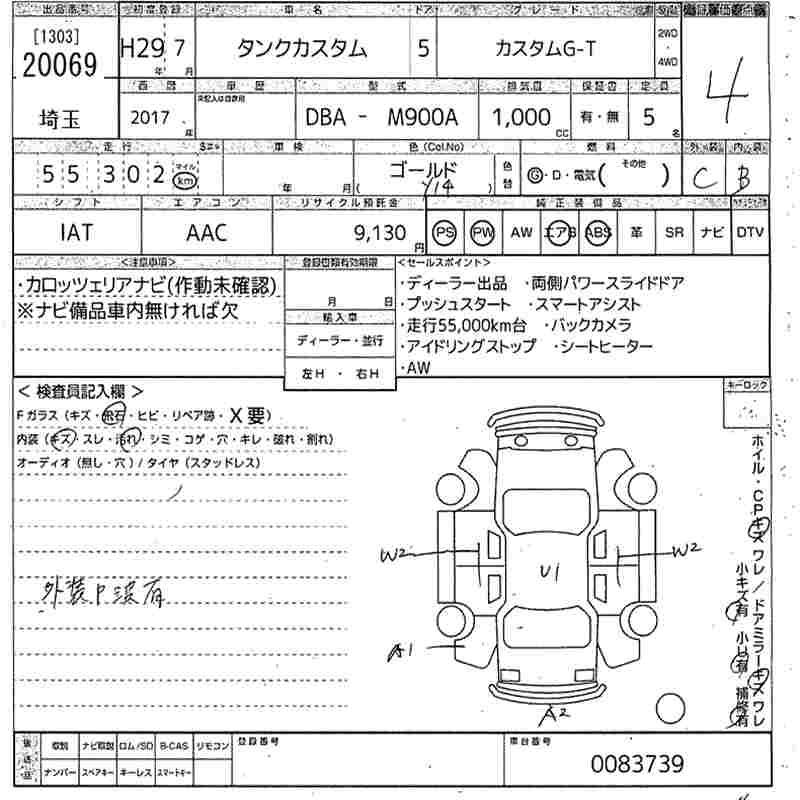 出品番号 初度登録 車名 ドア グレード 駆動 評価点
[1303]
20069
埼玉
H29 7 タンクカスタム 5 カスタムG-T 2WD ・ 4WD 4
年 月
西暦 車歴 型式 排気量 保証書 定員
2017 年 未記入は自家用 DBA - M900A 1,000 CC 有・無 5 名
走行 車検 色(Col.No) 燃料 外装 内装
55302 マイル km 年 月 ゴールド ( Y14 ) 色替 G・D・電気( その他 ) C B
シフト エアコン リサイクル預託金 純正装備品
IAT AAC 9,130 円 PS PW AW エアB ABS 革 SR ナビ DTV
<注意事項>
・カロッツェリアナビ(作動未確認)
※ナビ備品車内無ければ欠
登録書類有効期限
月 日
輸入車
ディーラー・並行
左H ・ 右H
<セールスポイント>
・ディーラー出品 ・両側パワースライドドア
・プッシュスタート ・スマートアシスト
・走行55,000km台 ・バックカメラ
・アイドリングストップ ・シートヒーター
・AW
キーロック
< 検査員記入欄 >
Fガラス(キズ・飛石・ヒビ・リペア跡・X要)
内装(キズ・スレ・汚れ・シミ・コゲ・穴・キレ・破れ・割れ)
オーディオ(無し・穴)/タイヤ(スタッドレス)
外装P渋有
W2
W2
U1
A1
A2
ホイル・CPキズワレ/ドアミラーキズワレ
小キズ有 小U有 補修有
取説 ナビ取説 ロム/SD B-CAS リモコン 登録番号 車台番号
ナンバー スペアキー キーレス スマートキー
0083739